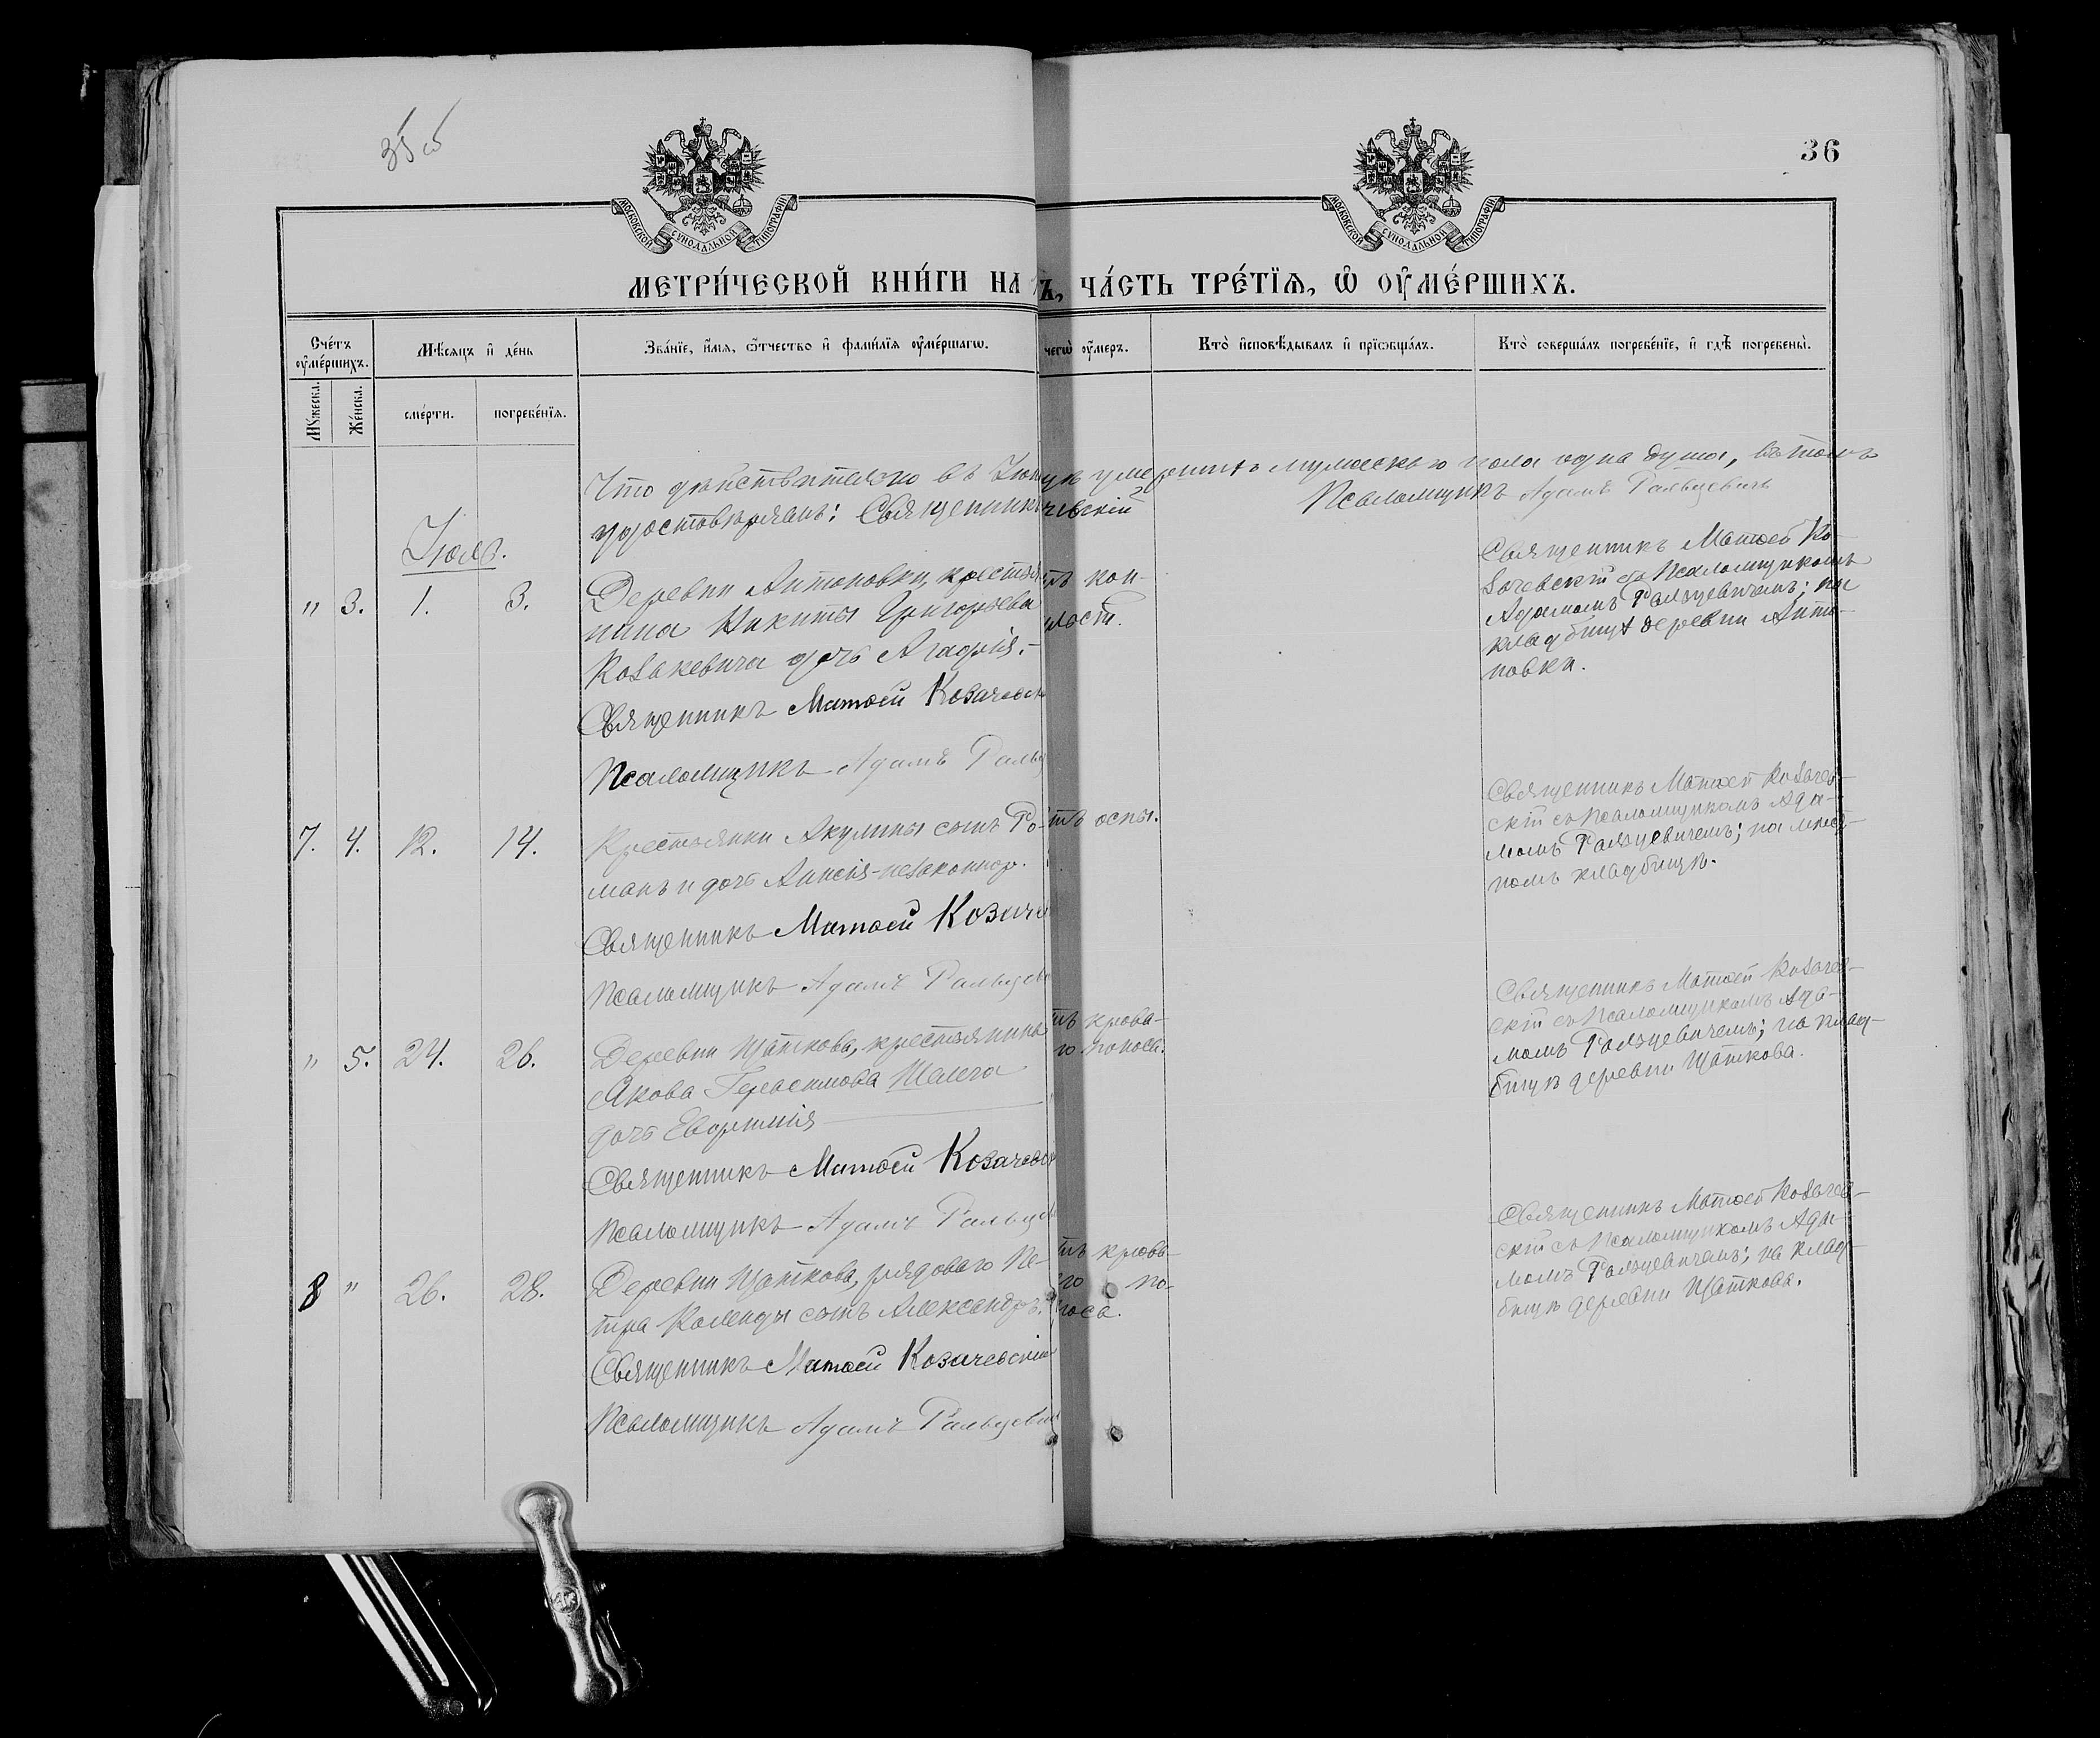 35 об
36
МОСКОВСКОЙ СУНОДАЛЬНОЙ ТИПОГРАФІИ
МОСКОВСКОЙ СУНОДАЛЬНОЙ ТИПОГРАФІИ
МЕТРИ́ЧЕСКОЙ КНИ́ГИ НА
Ъ, ЧА́СТЬ ТРЕ́ТЇѦ, Ѡ ОУМЕ́РШИХЪ.
Сче́тъ оумершихъ.
Мѣсяцъ и де́нь
Зва́нїе, и́мѧ, ѻтчество и фами́лїѧ оуме́ршагѡ.
чегѡ оумеръ.
Кто̀ исповѣдывалъ и прїобща́лъ.
Кто̀ соверша́лъ погребе́нїе, и гдѣ погребены̀.
Мꙋжеска.
Же́нска.
сме́рти.
погребе́нїѧ.
Что действительно въ Iюн
умершихъ мужескаго пола одна душа, въ томъ
удостовѣряемъ: Священникъ
чевскій
Псаломщикъ Адамъ Ральцевичъ
Iюль.
" 3. 1. 3.
Деревни Антоновки, крестья
нина Никиты Григорьева
Козакевича дочь Агафія.-
Священникъ Матѳей Козачевск
Псаломщикъ Адамъ Ральц
тъ кон-
Священникъ Матѳей Ко-
зачевскій съ Псаломщикомъ
Адамомъ Ральцевичемъ; на
кладбищѣ деревни Анто-
новки.
7. 4. 12. 14.
Крестьянки Акулины сынъ Ро-
манъ и дочь Анисія-незаконнор.
Священникъ Матѳей Козаче
Псаломщикъ Адамъ Ральцев
тъ оспы.
Священникъ Матѳей Козачев-
скій съ Псаломщикомъ Ада-
момъ Ральцевичемъ; на мѣст-
номъ кладбищѣ.
" 5. 24. 26.
Деревни Щаткова, крестьянина
Якова Герасимова Шалега
дочь Евфимія
Священникъ Матѳей Козачевск
Псаломщикъ Адамъ Ральцев
тъ крова-
го поноса.
Священникъ Матѳей Козачев-
скій съ Псаломщикомъ Ада-
момъ Ральцевичемъ; на клад-
бищѣ деревни Щаткова.
8 " 26. 28.
Деревни Щаткова, рядового Пе-
тра Коленды сынъ Александръ.
Священникъ Матѳей Козачевскій
Псаломщикъ Адамъ Ральцевич
тъ крова-
го по-
носа.
Священникъ Матѳей Козачев-
скій съ Псаломщикомъ Ада-
момъ Ральцевичемъ; на клад-
бищѣ деревни Щаткова.